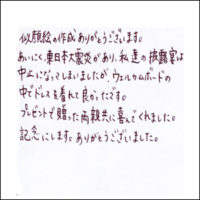 似顔絵の作成ありがとうございます。
あいにく、東日本大震災があり、私達の披露宴は
中止になってしまいましたが、ウェルカムボードの
中でドレスを着れて良かったです。
プレゼントで贈った両親共に喜んでくれました。
記念にします。ありがとうございました。